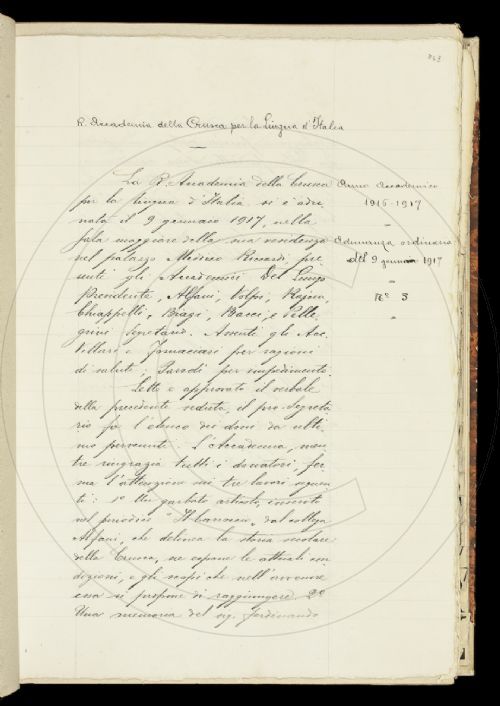 863
R. Accademia della Crusca per la Lingua d'Italia
La R. Accademia della Crusca
per la lingua d'Italia si è adu-
nata il 9 gennaio 1917, nella
sala maggiore della sua residenza
nel palazzo Mediceo Riccardi, pre-
senti gli Accademici Del Lungo
Presidente, Alfani, Volpi, Rajna,
Chiappelli, Biagi, Bacci, e Pelle-
grini Segretario. Assenti gli Acc.
Villari e Tomaciasi per ragioni
di salute; Parodi per impedimento.
Letto e approvato il verbale
della precedente seduta, il pro-Segreta-
rio fa l'elenco dei doni da ulti-
mo pervenuti. L'Accademia, men-
tre ringrazia tutti i donatori, fer-
ma l'attenzione sui tre lavori seguen-
ti: 1º Un garbato articolo, inserito
nel periodico "Il
dal collega
Alfani, che delinea la storia secolare
della Crusca, ne espone le attuali con-
dizioni, e gli scopi che nell'avvenire
essa si propone di raggiungere. 2º
Una memoria del sig. Ferdinando
Anno Accademico
1916-1917
Adunanza ordinaria
del 9 gennaio 1917
Nº 3